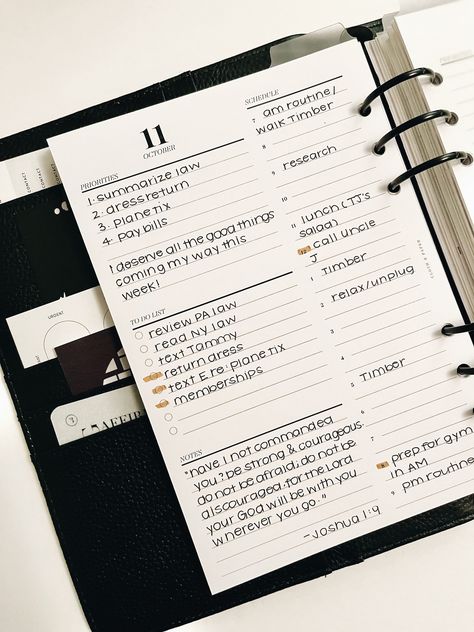 11
OCTOBER
PRIORITIES
1. summarize law
2. dress return
3. plane tix
4. pay bills
I deserve all the good things
coming my way this
week!
TO DO LIST
review PA law
read NY law
text Tammy
return dress
text E re: plane tix
memberships
NOTES
"have I not commanded
you? be strong & courageous.
do not be afraid; do not be
discouraged. for the Lord
your God will be with you
wherever you go."
-Joshua 1:9
SCHEDULE
7 am routine/
walk Timber
8
9 research
10
11 lunch (TJ's
salad)
12 call uncle
J
1 Timber
2 relax/unplug
3
4
5 Timber
6
7
8 prep for gym
in AM
9 pm routine
CLOTH & PAPER
CONTACT
CONTACT
CONTACT
URGENT